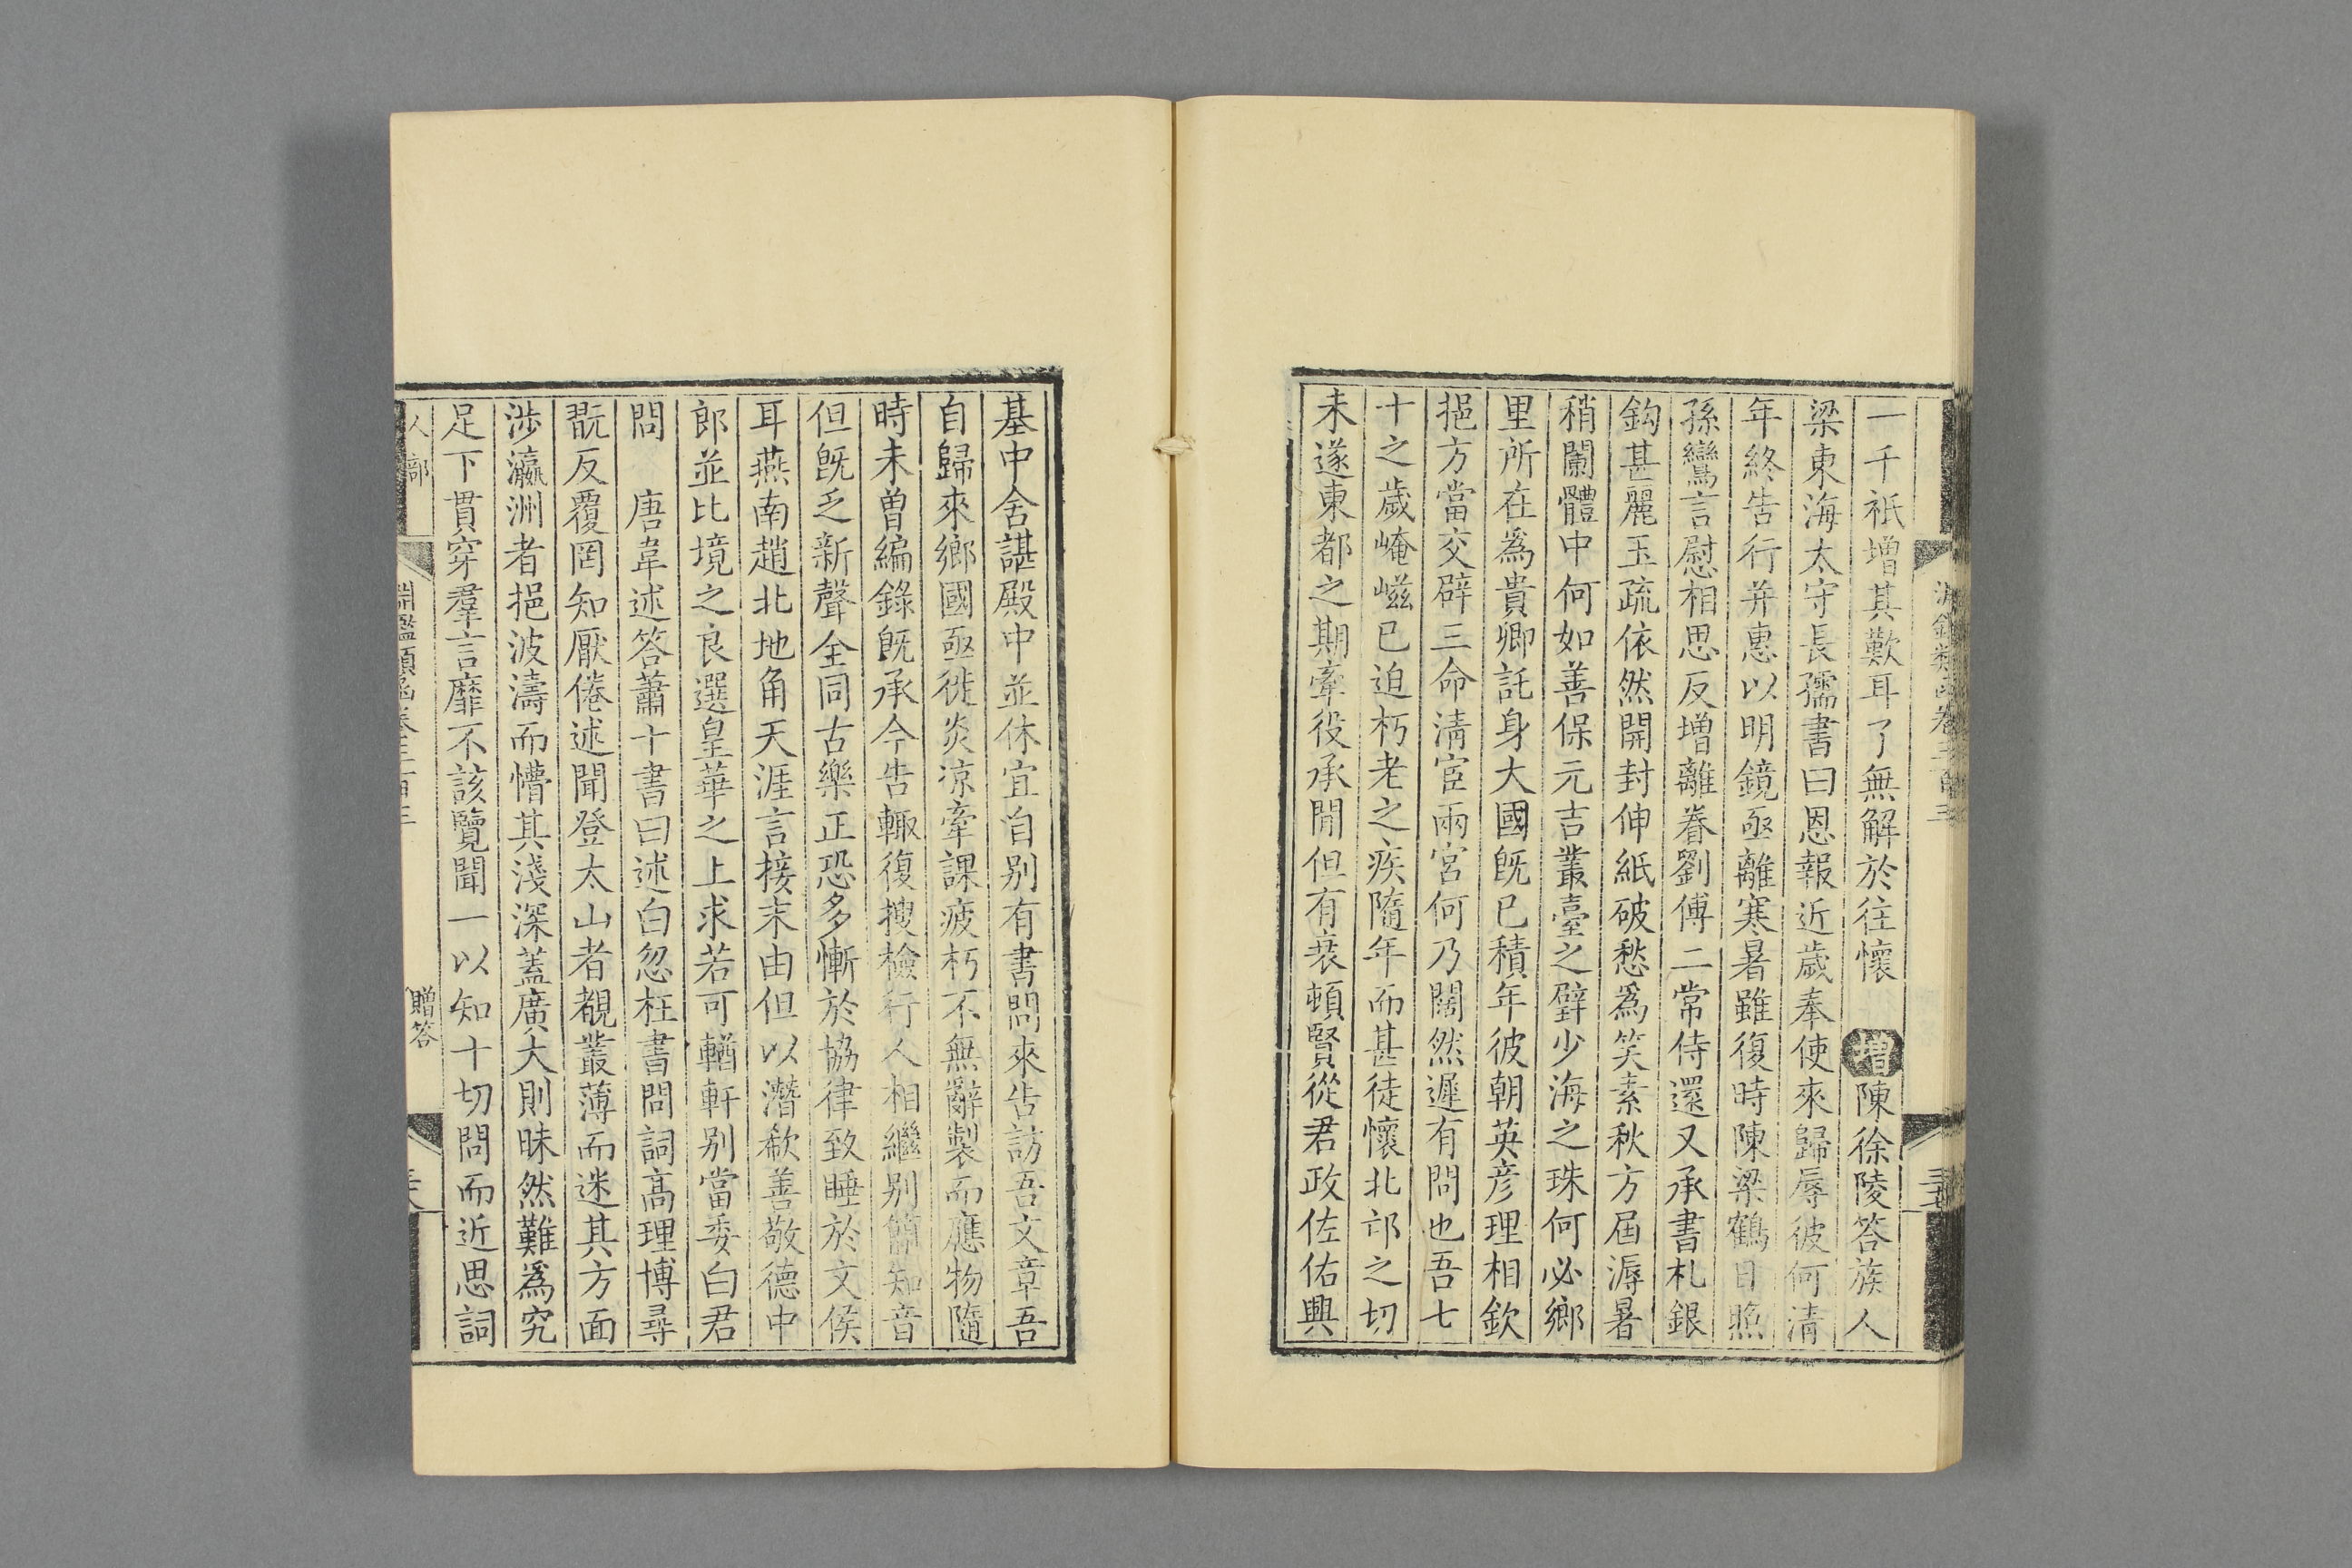 一千祇增其歎耳了無解於往懷 增陳徐陵答族人
梁東海太守長孺書曰恩報近歲奉使來歸辱彼何清
年終告行并惠以明鏡亟離寒暑雖復時陳梁鶴日照
孫鸞言慰相思反增離眷劉傅二常侍還又承書札銀
鈎甚麗玉疏依然開封伸紙破愁爲笑素秋方屆溽暑
稍闌體中何如善保元吉叢臺之璧少海之珠何必鄉
里所在爲貴卿託身大國旣已積年彼朝英彦理相欽
挹方當交辟三命淸宦兩宮何乃闊然遲有問也吾七
十之歲崦嵫已迫朽老之疾隨年而甚徒懷北邙之切
未遂東都之期牽役承閒但有衰頓賢從君政佐佑興
基中舍諶殿中並休宜自別有書問來告訪吾文章吾
自歸來鄉國亟徙炎凉牽課疲朽不無辭製而應物隨
時未曾編錄旣承今告輙復搜檢行人相繼別簡知音
但旣乏新聲全同古樂正恐多慚於協律致睡於文侯
耳燕南趙北地角天涯言接末由但以潛欷善敬德中
郎並比境之良選皇華之上求若可輶軒別當委白君
問 唐韋述答蕭十書曰述白忽枉書問詞高理博尋
翫反覆罔知厭倦述聞登太山者覩叢薄而迷其方面
涉瀛洲者挹波濤而懵其淺深蓋廣大則昧然難爲究
足下貫穿羣言靡不該覽聞一以知十切問而近思詞
人部
淵鑑類函卷三百三
贈答